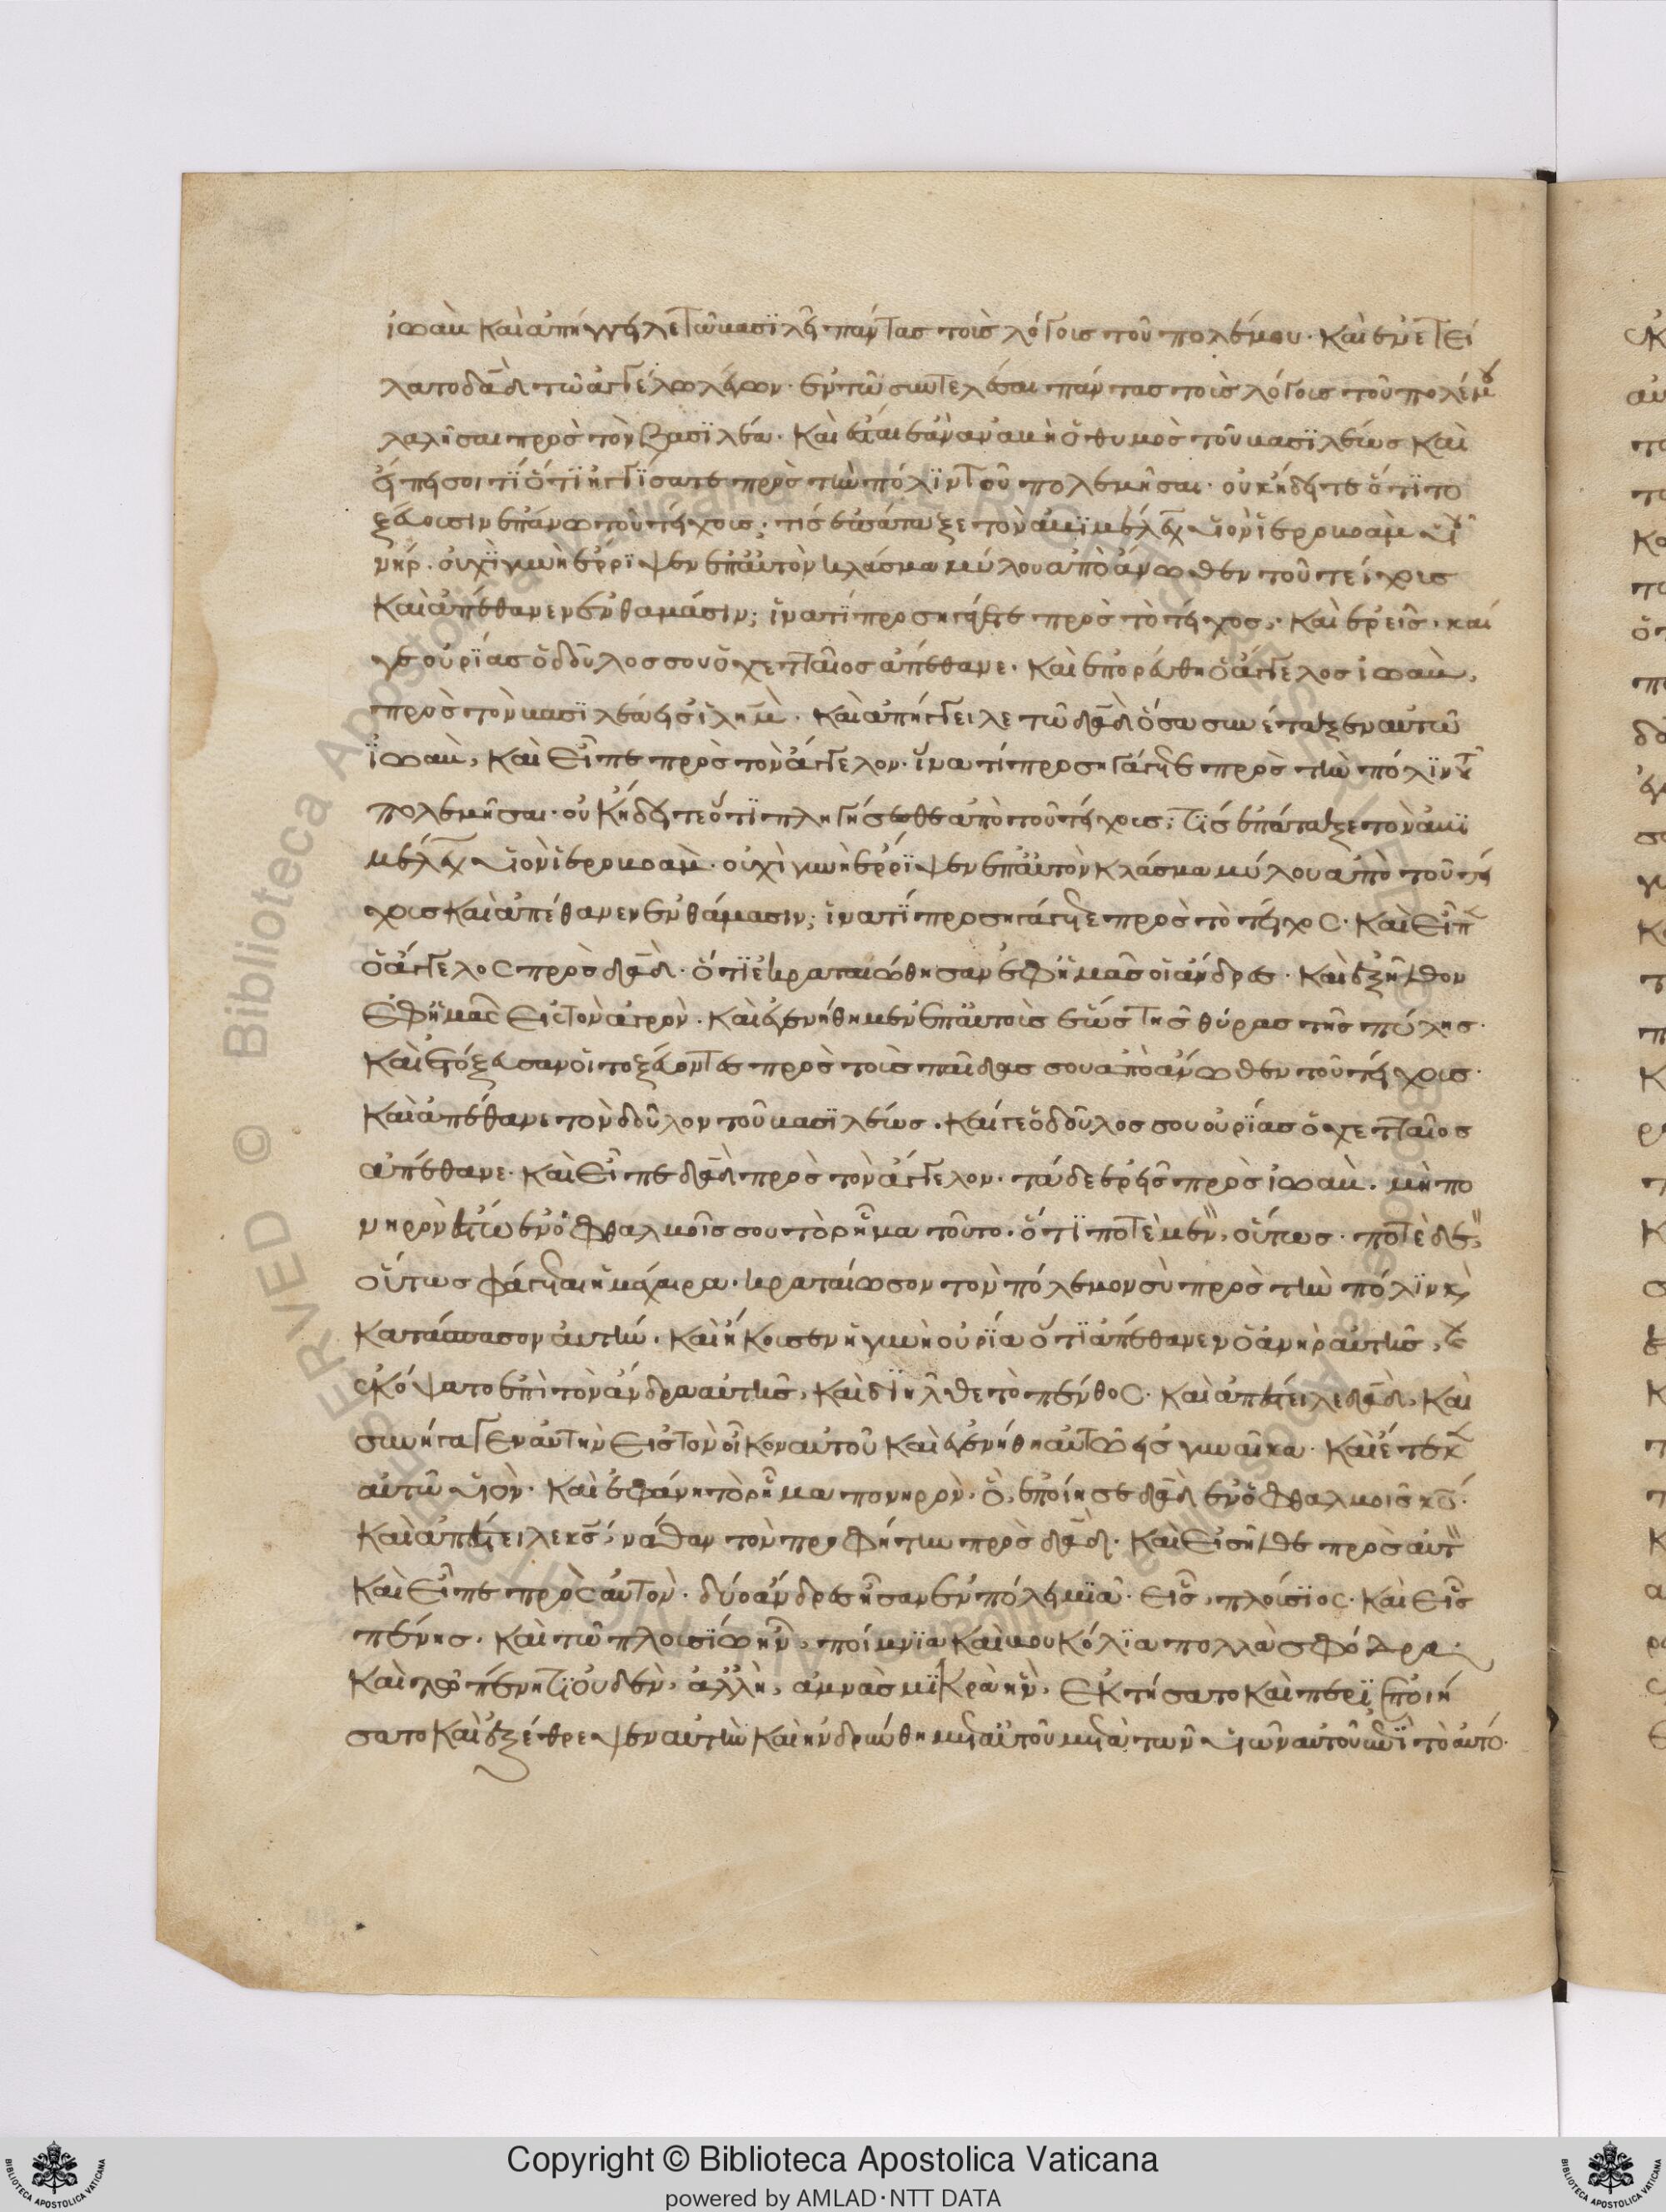 ἰωαὺ καὶ ἀπήγγειλε τῶ βασϊλεῖ πάντας τοὺς λόγους τοῦ πολέμου· καὶ ἐνετεί
λατο δᾱδ τῶ ἀγγέλω λέγων· ἐν τῶ συντελέσαι πάντας τοὺς λόγους τοῦ πολέμου
λαλῆσαι πρὸς τὸν βασϊλέα· καὶ ἔσται ἐὰν ἀναβῆ ὁ θυμὸς τοῦ βασϊλέως καὶ
εἴπη σοι τί ὅτι ἠγγίσατε πρὸς τὴν πόλϊν τοῦ πολεμῆσαι· οὐκ ἤδειτε ὅτϊ το
ξεύουσιν ἐπάνω τοῦ τείχους; τίς ἐπάταξε τὸν ἀβϊμέλεχ υἱὸν ἱεροβοὰμ υἱοῦ
νήρ· οὐχὶ γυνὴ ἔρριψεν ἐπ' αὐτὸν κλάσμα μύλου ἀπὸ ἄνωθεν τοῦ τείχους
καὶ ἀπέθανεν ἐν θαμάσιν; ἵνα τί προσηγάγετε πρὸς τὸ τεῖχος· καὶ ἐρεῖς· καί
γε οὐρίας ὁ δοῦλος σου ὁ χετταῖος ἀπέθανε· καὶ ἐπορεύθη ὁ ἄγγελος ἰωαὺ,
πρὸς τὸν βασϊλέα εἰς ἱλημ̄· καὶ ἀπήγγειλε τῶ δᾱδ ὅσα συνέταξεν αὐτῶ
ἰωαὺ, καὶ εἶπε πρὸς τὸν ἄγγελον· ἵνα τί προσηγάγετε πρὸς τὴν πόλϊν τοῦ
πολεμῆσαι· οὐκ ἤδειτε ὅτϊ πληγήσεσθε ἀπὸ τοῦ τείχους; τίς ἐπάταξε τὸν ἀβϊ
μέλεχ υἱὸν ἱεροβοάμ· οὐχὶ γυνὴ ἔρρϊψεν ἐπ' αὐτὸν κλάσμα μύλου ἀπὸ τοῦ τεί
χους καὶ ἀπέθανεν ἐν θάμασιν; ἵνα τί προσηγάγετε πρὸς τὸ τεῖχος· καὶ εἶπε
ὁ ἄγγελος πρὸς δᾱδ· ὅτϊ ἐκραταιώθησαν ἐφ' ἡμᾶς οἱ ἄνδρες· καὶ ἐξῆλθον
ἐφ' ἡμᾶς εἰς τὸν ἀγρὸν· καὶ ἐγενήθημεν ἐπ' αὐτοὺς ἕως τῆς θύρας τῆς πύλης·
καὶ ἐτόξευσαν οἱ τοξεύοντες πρὸς τοὺς παῖδας σου ἀπὸ ἄνωθεν τοῦ τείχους·
καὶ ἀπέθανε τὸν δοῦλον τοῦ βασϊλέως. καί γε ὁ δοῦλος σου οὐρίας ὁ χετταῖος
ἀπέθανε· καὶ εἶπε δᾱδ πρὸς τὸν ἄγγελον· τάδε ἐρεῖς πρὸς ἰωαὺ. μὴ πο
νηρὸν ἔστω ἐν ὀφθαλμοῖς σου τὸ ῥῆμα τοῦτο· ὅτϊ ποτὲ μὲν, οὕτως· ποτὲ δὲ,
οὕτως φάγεται ἡ μάχαιρα· κραταίωσον τὸν πόλεμον σὺ πρὸς τὴν πόλϊν κ̀
κατάσπασον αὐτήν· καὶ ἤκουσεν ἡ γυνὴ οὐρία ὅτϊ ἀπέθανεν ὁ ἀνὴρ αὐτῆς, κ̀ ἐ
κόψατο ἐπὶ τὸν ἄνδρα αὐτῆς, καὶ διῆλθε τὸ πένθος· καὶ ἀπέστειλε δᾱδ, καὶ
συνήγαγεν αὐτὴν εἰς τὸν οἶκον αὐτοῦ καὶ ἐγενήθη αὐτῶ εἰς γυναῖκα· καὶ ἔτεκεν
αὐτῶ υἱὸν· καὶ ἐφάνη τὸ ῥῆμα πονηρὸν, ὃ, ἐποίησε δᾱδ ἐν ὀφθαλμοῖς κ̄υ·
καὶ ἀπέστειλε κ̄ς, νάθαν τὸν προφήτην πρὸς δᾱδ· καὶ εἰσῆλθε πρὸς αὐτὸν
καὶ εἶπε πρὸς αὐτὸν· δύο ἄνδρες ἦσαν ἐν πόλει μϊᾶ· εἷς, πλούσϊος· καὶ εἷς
πένης· καὶ τῶ πλουσίω ἦν, ποίμνϊα καὶ βουκόλϊα πολλὰ σφόδρα·
καὶ τῶ πένητϊ οὐδὲν, ἀλλ' ἢ, ἀμνὰς μϊκρὰ ἣν, ἐκτήσατο καὶ περϊεποιή
σατο καὶ ἐξέθρεψεν αὐτὴν καὶ ἡνδρώθη μετ' αὐτοῦ μετὰ τῶν υἱῶν αὐτοῦ ἐπὶ τὸ αὐτό·
Copyright © Biblioteca Apostolica Vaticana
powered by AMLAD·NTT DATA